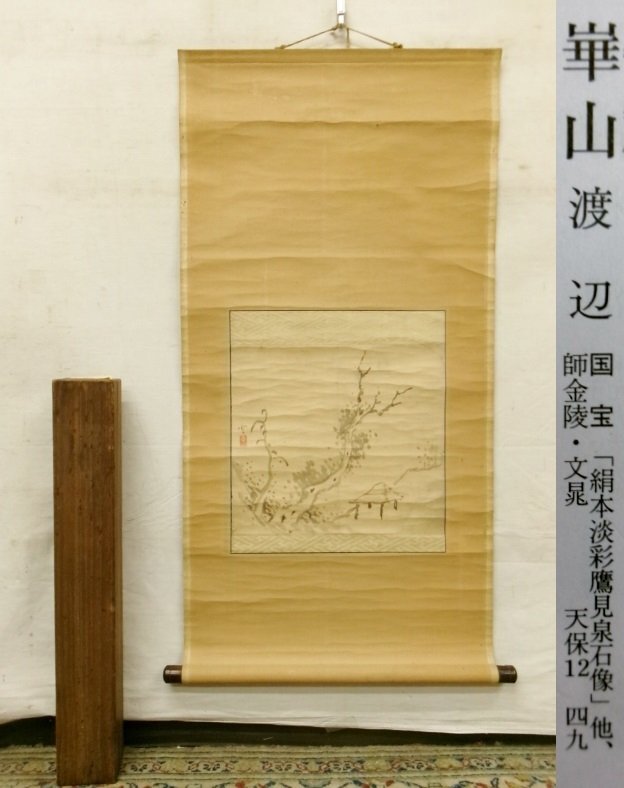 崋山 渡辺
国宝「絹本淡彩鷹見泉石像」他、
師金陵・文晁 天保12 四九